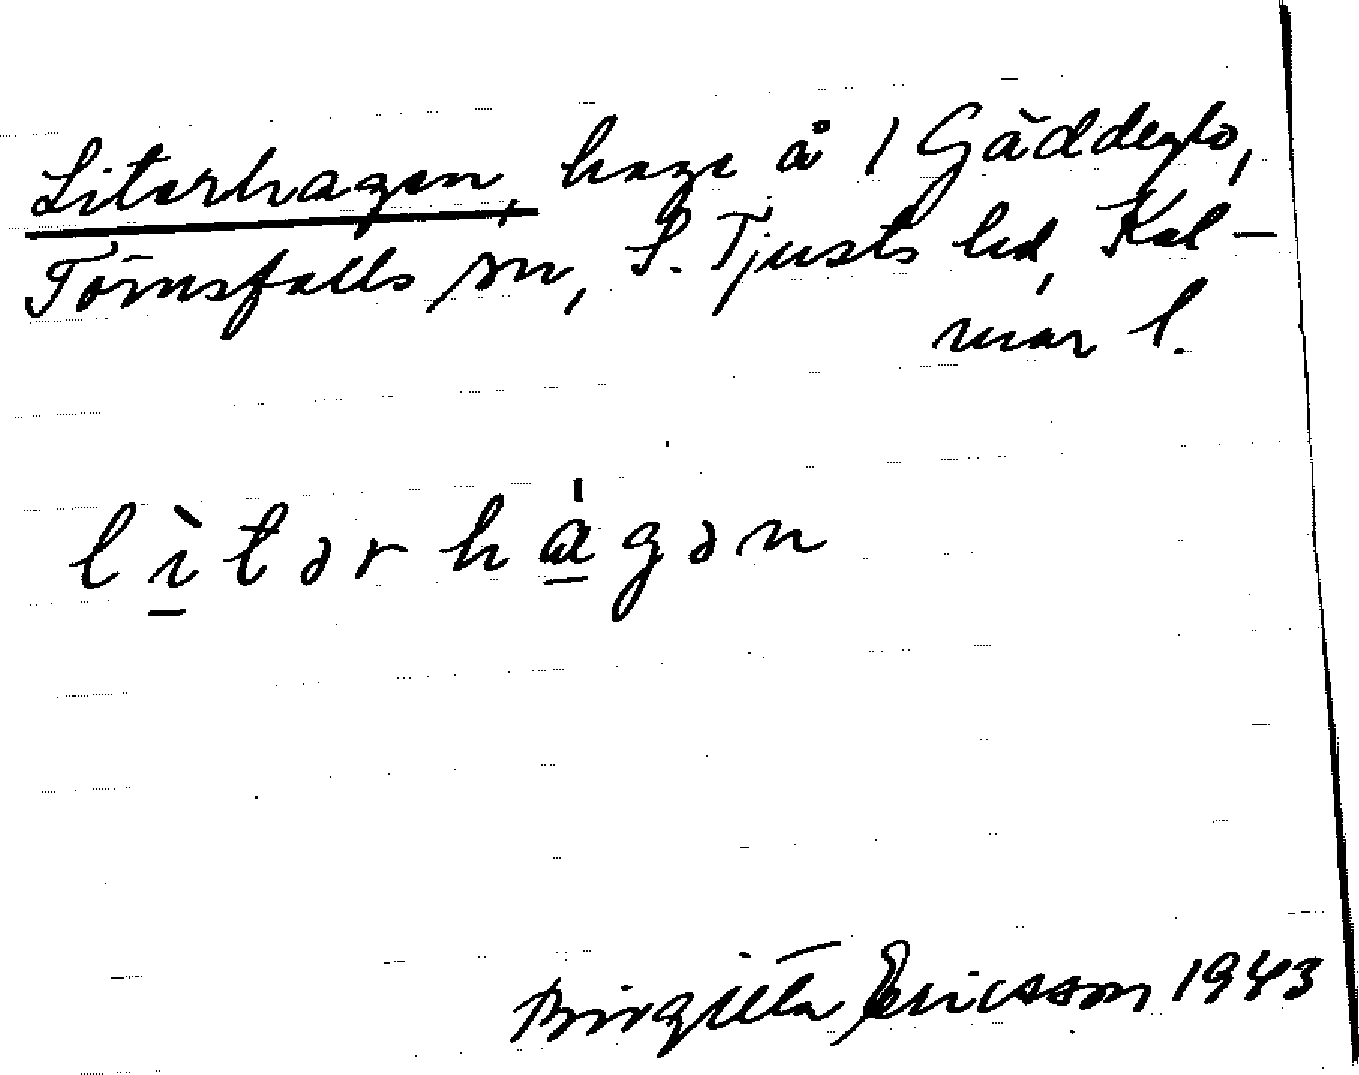 Literhagen, hage å 1 Gäddeglo,
Törnsfalls sn, S. Tjusts hd, Kal-
mar l.
lìtərhágən
Birgitta Ericsson 1943